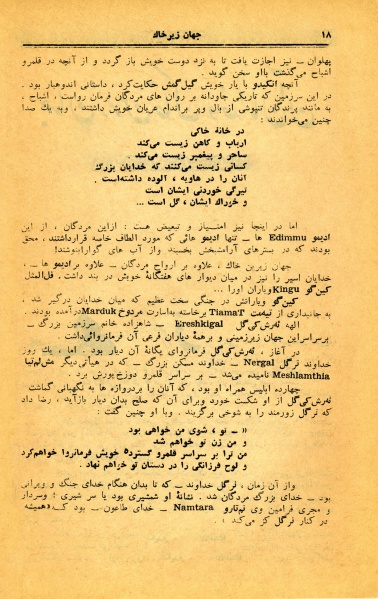 ۱۸ جهان زیرخاک
پهلوان ــ نیز اجازت یافت تا به نزد دوست خویش باز گردد و از آنچه در قلمرو
اشباح می‌گذشت بااو سخن گوید .
آنچه انکیدو با یار خویش گیل‌گمش حکایت‌کرد ، داستانی اندوهبار بود .
در این سرزمین که تاریکی جاودانه بر روان های مردگان فرمان رواست ، اشباح ،
به مانند پرندگان تنپوشی از بال وپر براندام عریان خویش داشتند ، وبه یک صدا
چنین می‌خواندند :
در خانهٔ خاکی
ارباب و کاهن زیست می‌کند
ساحر و پیغمبر زیست می‌کند .
کسانی زیست می‌کنند که خدایان بزرگ
آنان را در هاویه ، آلوده داشته‌است .
تیرگی خوردنی ایشان است
و خوراک ایشان ، گل است ...
اما در اینجا نیز امتیاز و تبعیض هست : ازاین مردگان ، از این
ادیمو Edimmu ها ــ تنها ادیمو هائی که مورد الطاف خاصه قرارداشتند ، محق
بودند که در بسترهای آرامشبخش بخسبند واز آب های گوارابنوشند!
جهان زیرین خاک ، علاوه بر ارواح مردگان ــ علاوه برادیمو ها ــ ،
خدایان اسیر را نیز در میان دیوار های هفتگانهٔ خویش در بند داشت . فی‌المثل
کین‌گو Kingu ویاران اورا ...
کین‌گو ویارانش در جنگی سخت عظیم که میان خدایان درگیر شد .
به جانبداری از تیمت TiamaT برخاسته به‌اسارت مردوخ Marduk درآمده بودند .
الهه ئه‌رش‌کی‌گل Ereshkigal ــ شاهزاده خانم سرزمین بزرگ ــ
برسراسراین جهان زیرزمینی و برهمهٔ دیاران فرعی آن فرمانروائی‌داشت .
در آغاز ، ئه‌رش‌کی‌گل فرمانروای یگانهٔ آن دیار بود . اما ، یک روز
خداوند نرگل Nergal ــ خداوند مسکن بزرگ ــ که در هیأتی دیگر مش‌لم‌تیا
Meshlamthia نامیده می‌شد ــ بر سراسر قلمرو دوزخ یورش برد .
چهارده ابلیس همراه او بود ، که آنان را بردروازه ها به نگهبانی گماشت
ئه‌رش‌کی‌گل از او شکست خورد وبرای آن که صلح بدان دیار بازآید ، رضا داد
که نرگل زورمند را به شوئی برگزیند . وبا او چنین گفت :
« ــ تو ، شوی من خواهی بود
و من زن تو خواهم شد
من ترا بر سراسر قلمرو گستردهٔ خویش فرمانروا خواهم‌کرد
و لوح فرزانگی را در دستان تو خواهم نهاد .
واز آن زمان ، نرگل خداوند ــ که تا بدان هنگام خدای جنگ و ویرانی
بود ــ خدای بزرگ مردگان شد . نشانهٔ او شمشیری بود یا سر شیری ؛ وسردار
و مجری فرامین وی نم‌تارو Namtara ــ خدای طاعون ــ بود که همیشه
در کنار نرگل